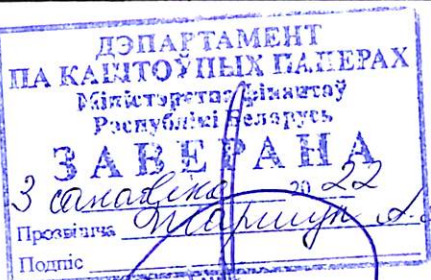 ДЭПАРТАМЕНТ
ПА КАШТОЎНЫХ ПАПЕРАХ
Міністэрства фінансаў
Рэспублікі Беларусь
ЗАВЕРАНА
3 20 22
Прозвішча
Подпіс